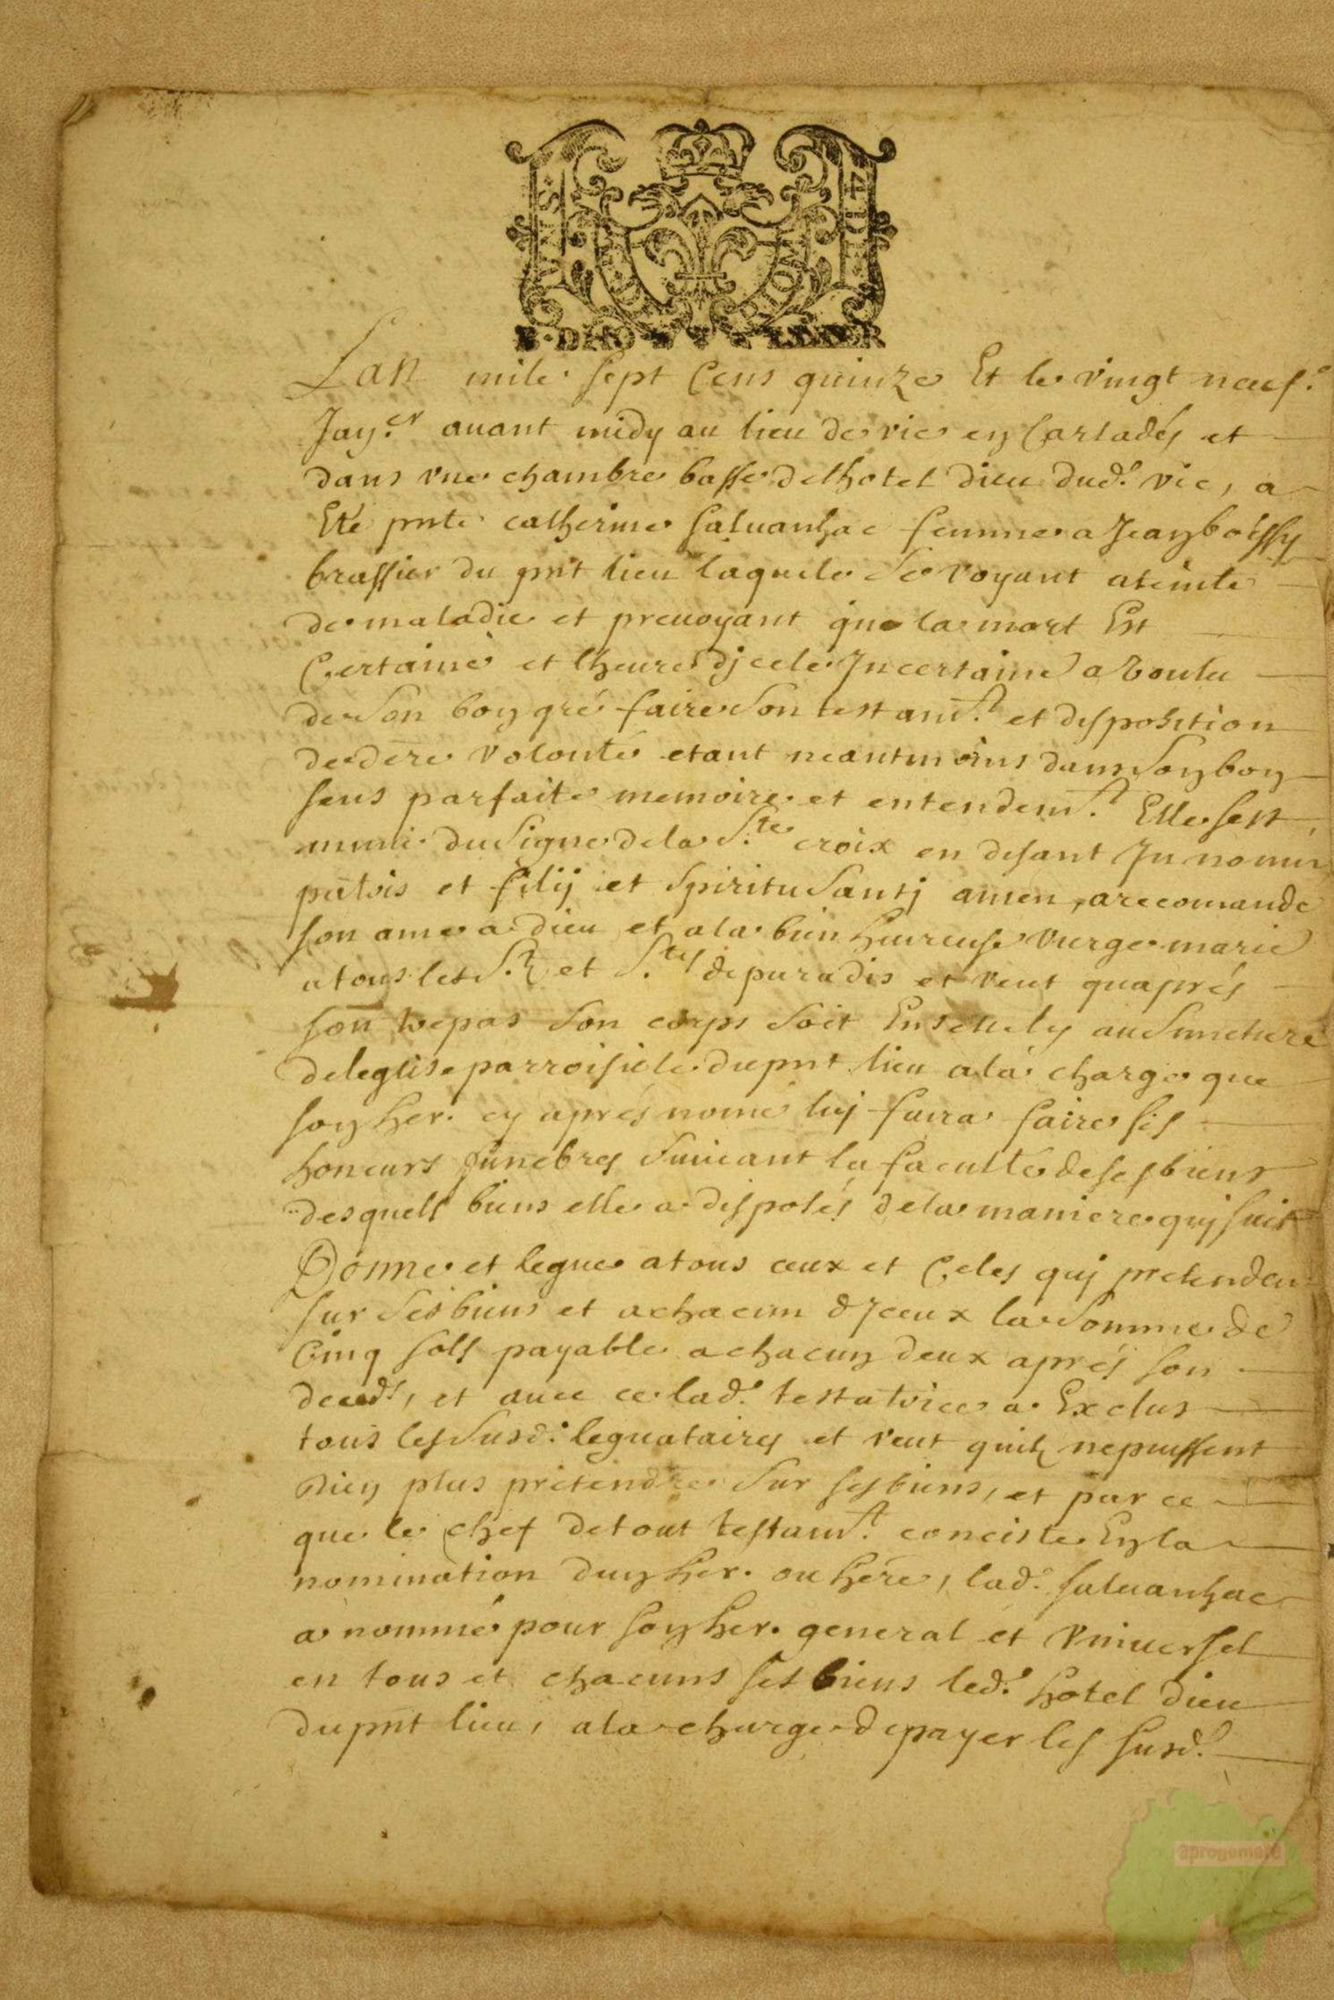 Lan mile sept Cens quinze Et le vingt neuf.e
Jan.er auant midy au lieu de vic en Carladés et
dans vne chambre basse delhotel dieu dud.t vic, a
Eté pnte catherine saluanhac femme a Jean boissy
brassier du pnt lieu laquele se voyant ateinte
de maladie et preuoyant que la mort Est
Certaine et lheure djcele Jncertaine a voulu
de son bon gré faire son testam.t et disposition
de dere volonté etant neantmoins dans son bon
sens parfaite memoire et entendem.t Elle sest
muni du signe de la S.te croix en disant Jn nomin
patris et filij et spiritu Santj amen, a recomande
son ame a dieu et a la bien heureuse vierge marie
a tous les S.ts et S.tes de paradis et veut quaprés
son trepas son corps soit Enseuely au simetiere
deleglise parroisiele dupnt lieu ala charge que
son her. cy aprés nomé luj faira faire ses
honeurs funebres suiuant la faculté de ses biens
desquels biens elle a disposés dela maniere quj suit
Donne et legue atous ceux et Celes quj pretenden
sur ses biens et achacun djceux la somme de
Cinq sols payable achacun deux aprés son
deced.s, et auec ce lad.e testatrice a Exclus
tous les susd. leguataires et veut quils nepuissent
Rien plus pretendre sur ses biens, et par ce
que le chef detout testam.t conciste En la
nomination dun her. ou here, lad.e saluanhac
a nommé pour son her. general et vniuersel
en tous et chacuns ses biens led.t hotel dieu
dupnt lieu, ala charge depayer les susd.s
aprogemere